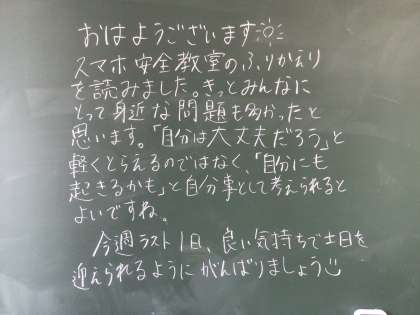 おはようございます
スマホ安全教室のふりかえり
を読みました。きっとみんなに
とって身近な問題も多かったと
思います。「自分は大丈夫だろう」と
軽くとらえるのではなく、「自分にも
起きるかも」と自分事として考えられると
よいですね。
今週ラスト1日、良い気持ちで土日を
迎えられるようにがんばりましょう